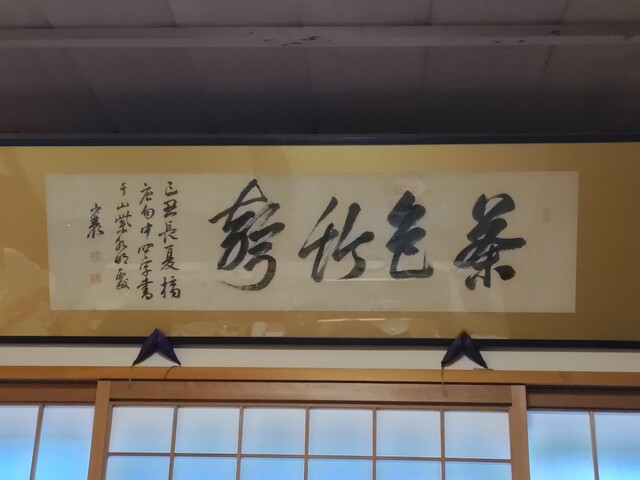 茶色竹
己丑長夏摘
唐句中四字書
于山紫水明處
襄